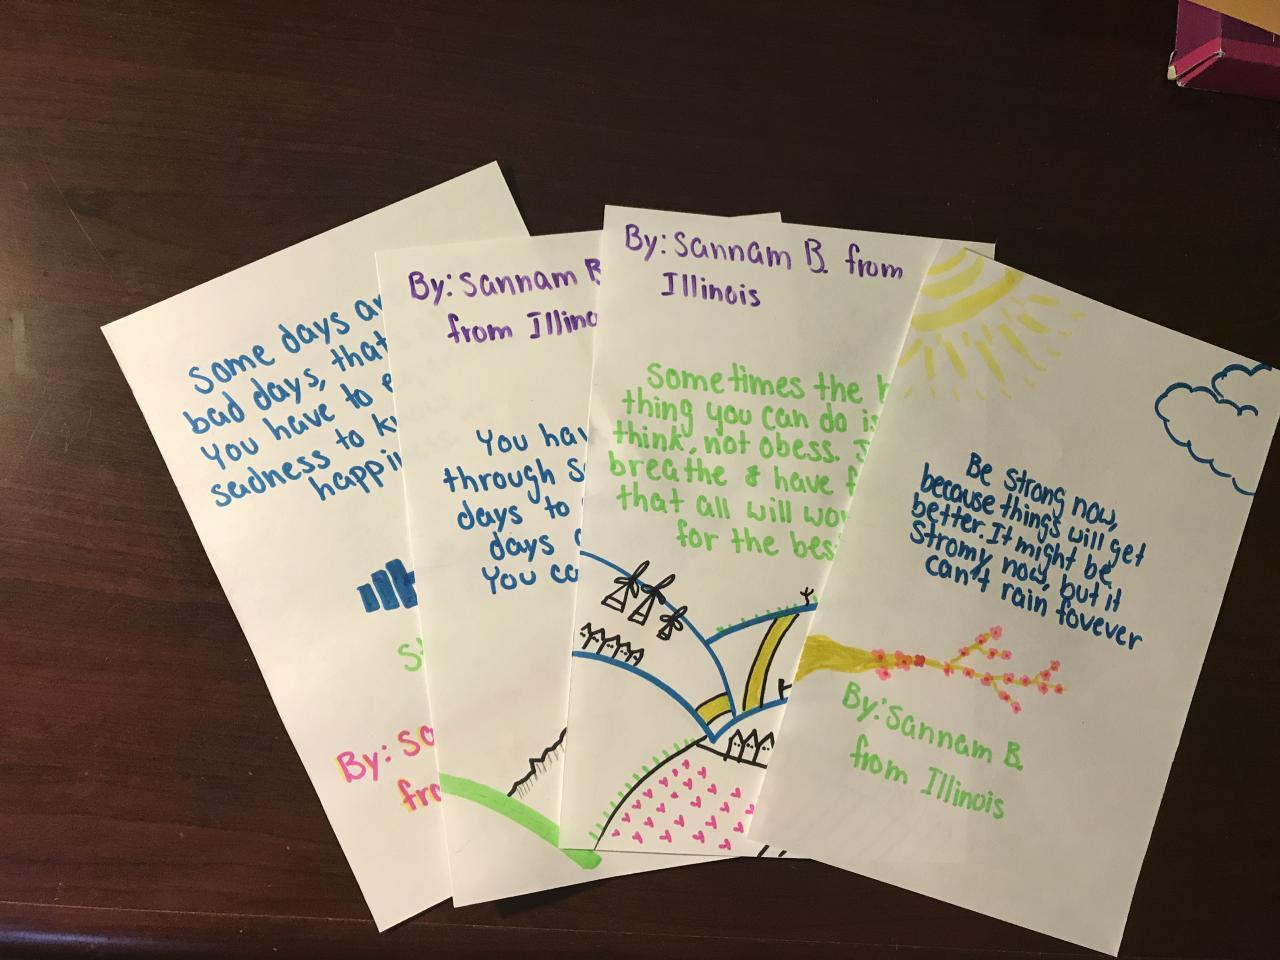 Some days
bad days, that
You have to
sadness to
By:
By: Sannam B
from
You
through
days to
days
You
By: Sannam B. from
Illinois
Sometimes the
thing you can do
think, not obess.
breathe & have
that all will
for the
Be Strong now,
because things will get
better. It might be
Stromy now, but it
can't rain fovever
By: Sannam B.
from Illinois